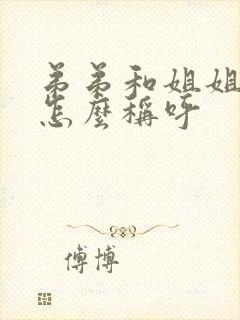 弟弟和姐姐
怎麼稱呼
傅博